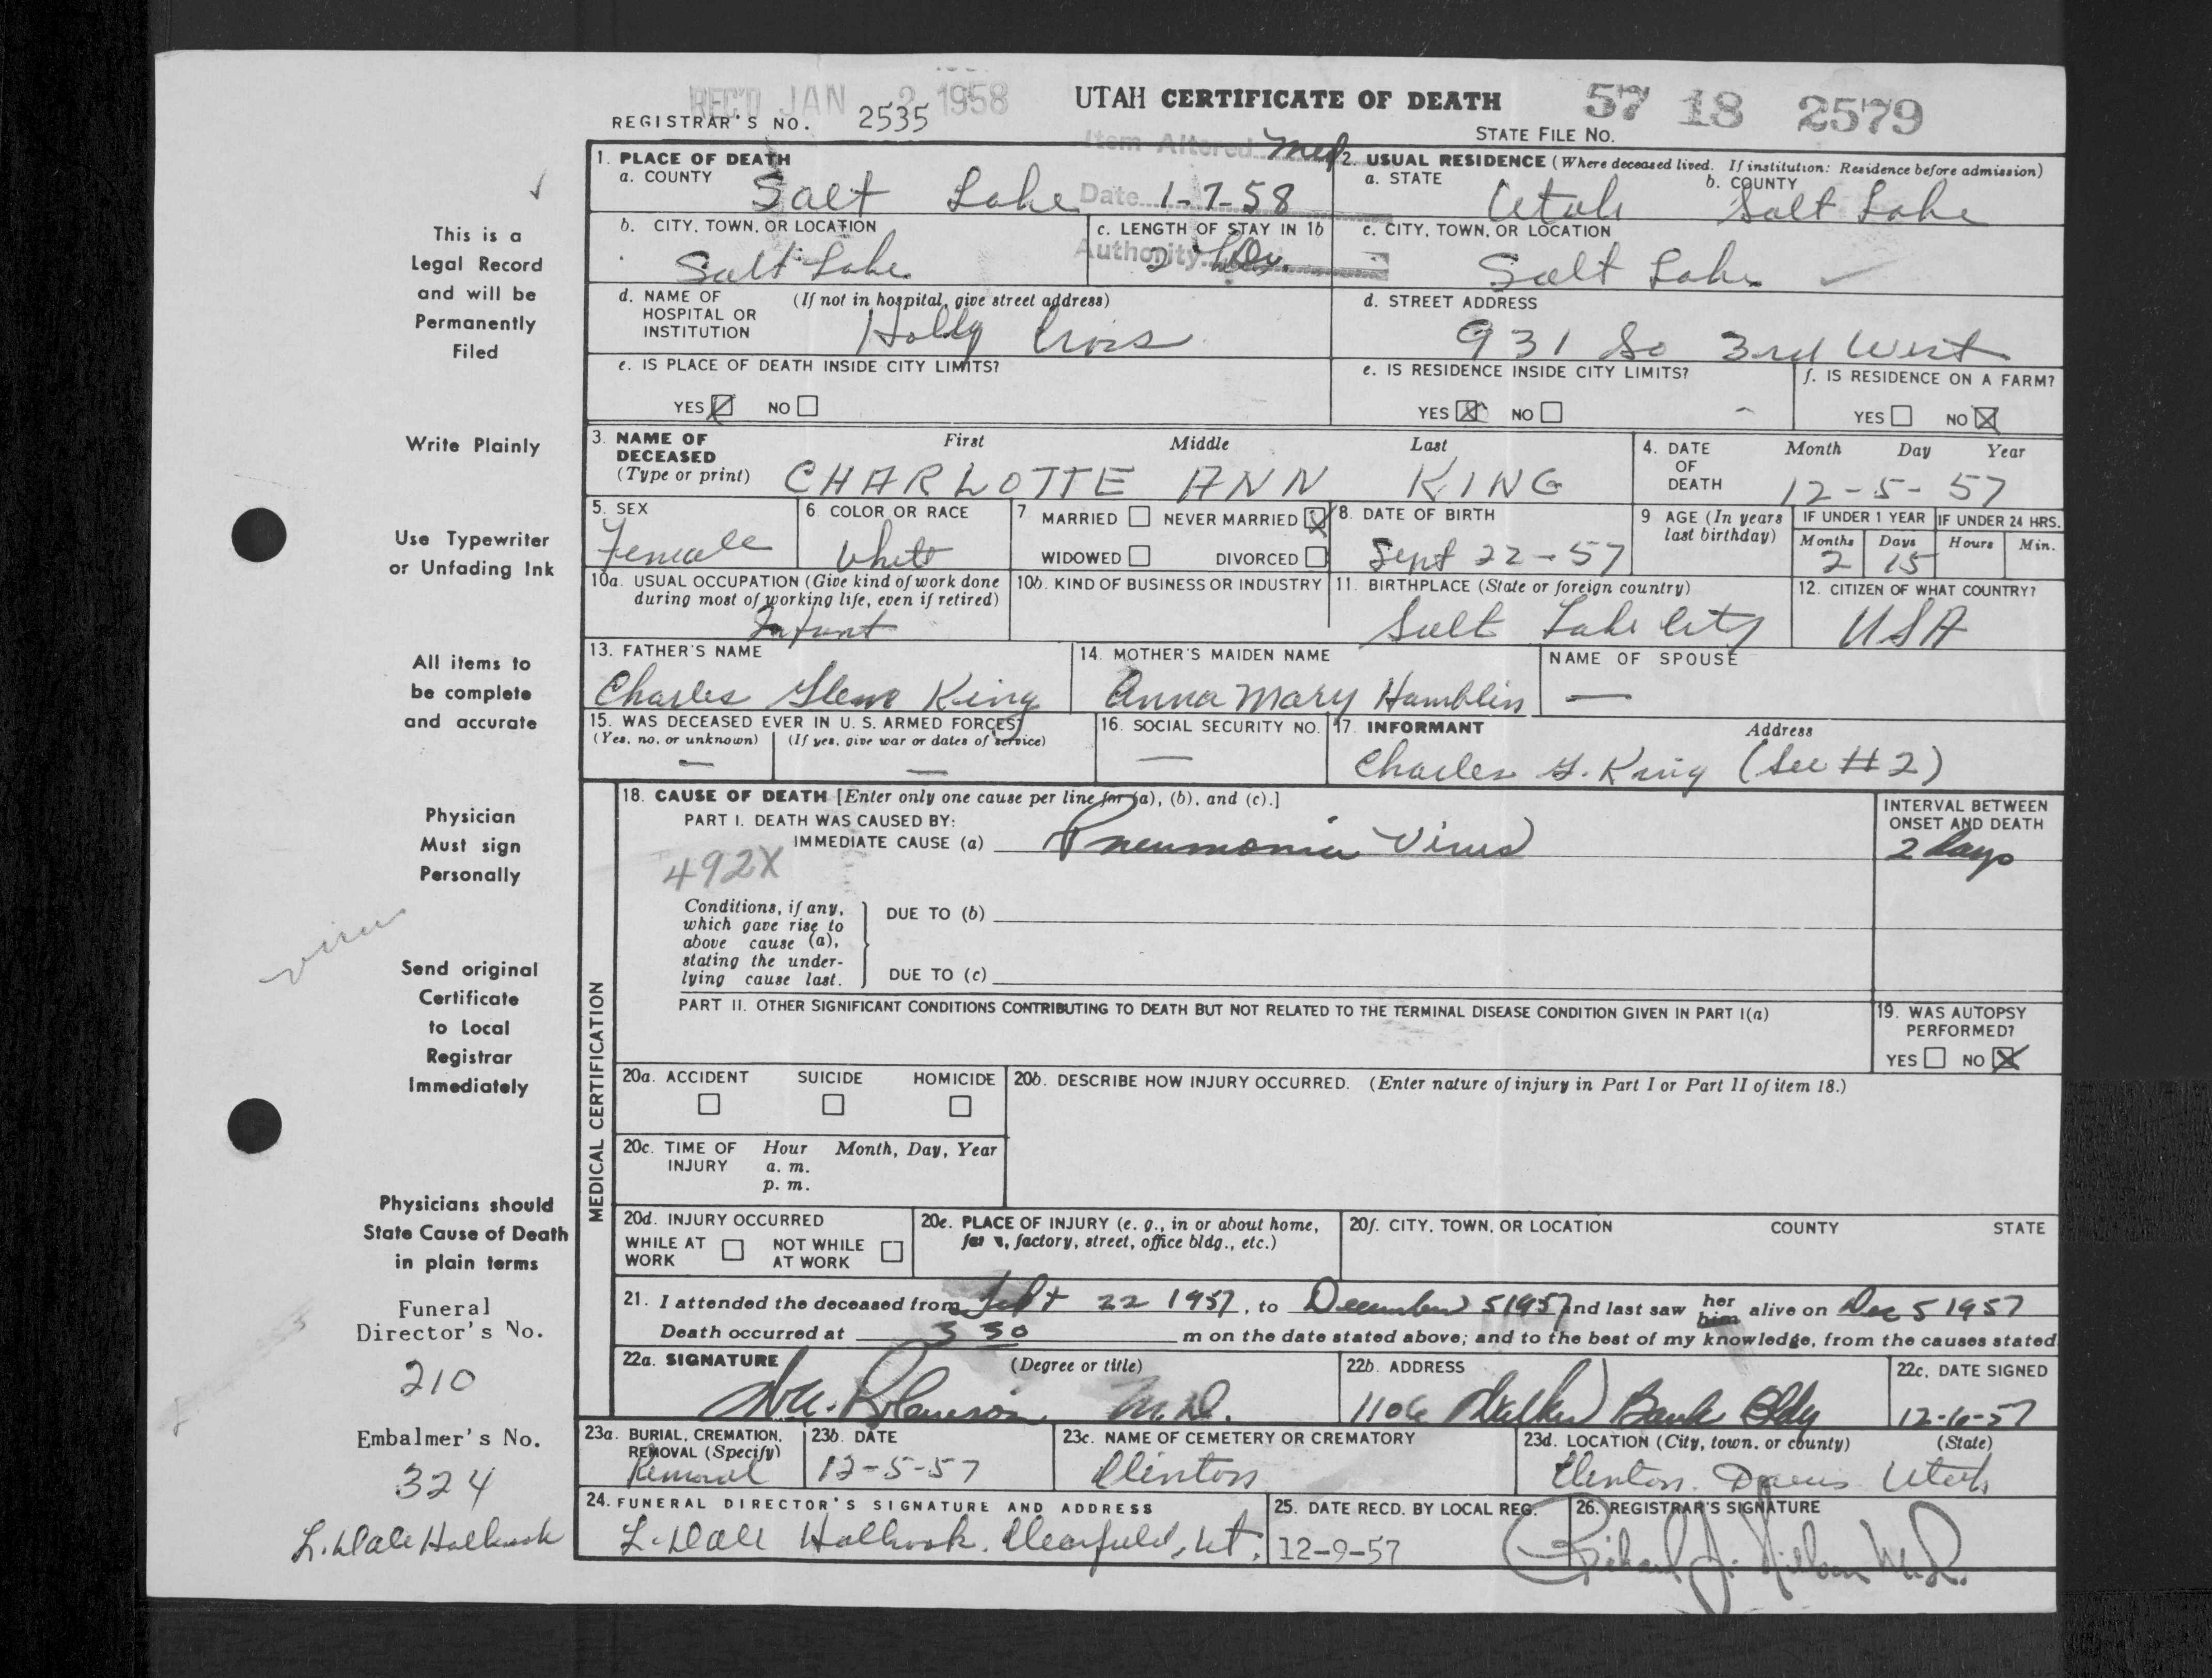 REC'D JAN 2 1958
UTAH CERTIFICATE OF DEATH
57 18 2579
REGISTRAR'S NO. 2535
STATE FILE NO.
Item Altered Med
Date 1-7-58
Authority
1. PLACE OF DEATH
a. COUNTY Salt Lake
2. USUAL RESIDENCE (Where deceased lived. If institution: Residence before admission)
a. STATE Utah b. COUNTY Salt Lake
b. CITY, TOWN, OR LOCATION Salt Lake
c. LENGTH OF STAY IN 1b 2
c. CITY, TOWN, OR LOCATION Salt Lake
d. NAME OF HOSPITAL OR INSTITUTION (If not in hospital, give street address) Holly Cross
d. STREET ADDRESS 931 So 3rd West
e. IS PLACE OF DEATH INSIDE CITY LIMITS?
YES NO
e. IS RESIDENCE INSIDE CITY LIMITS?
YES NO
f. IS RESIDENCE ON A FARM?
YES NO
3. NAME OF DECEASED (Type or print)
First Middle Last
CHARLOTTE ANN KING
4. DATE OF DEATH
Month Day Year
12-5-57
5. SEX Female
6 COLOR OR RACE White
7 MARRIED NEVER MARRIED
WIDOWED DIVORCED
8. DATE OF BIRTH Sept 22-57
9 AGE (In years last birthday)
IF UNDER 1 YEAR IF UNDER 24 HRS.
Months Days Hours Min.
2 15
10a. USUAL OCCUPATION (Give kind of work done during most of working life, even if retired) Infant
10b. KIND OF BUSINESS OR INDUSTRY
11. BIRTHPLACE (State or foreign country) Salt Lake City
12. CITIZEN OF WHAT COUNTRY? USA
13. FATHER'S NAME Charles Glenn King
14. MOTHER'S MAIDEN NAME Anna Mary Hamblin
NAME OF SPOUSE —
15. WAS DECEASED EVER IN U.S. ARMED FORCES?
(Yes, no, or unknown) (If yes, give war or dates of service)
— —
16. SOCIAL SECURITY NO. —
17. INFORMANT Address
Charles G. King (See #2)
18. CAUSE OF DEATH [Enter only one cause per line for (a), (b), and (c).]
PART I. DEATH WAS CAUSED BY:
IMMEDIATE CAUSE (a) Pneumonia Virus
INTERVAL BETWEEN ONSET AND DEATH
2 days
492X
Conditions, if any, which gave rise to above cause (a), stating the underlying cause last.
DUE TO (b)
DUE TO (c)
PART II. OTHER SIGNIFICANT CONDITIONS CONTRIBUTING TO DEATH BUT NOT RELATED TO THE TERMINAL DISEASE CONDITION GIVEN IN PART I(a)
19. WAS AUTOPSY PERFORMED?
YES NO
20a. ACCIDENT SUICIDE HOMICIDE
20b. DESCRIBE HOW INJURY OCCURRED. (Enter nature of injury in Part I or Part II of item 18.)
20c. TIME OF INJURY Hour Month, Day, Year
a. m.
p. m.
20d. INJURY OCCURRED
WHILE AT WORK NOT WHILE AT WORK
20e. PLACE OF INJURY (e. g., in or about home, farm, factory, street, office bldg., etc.)
20f. CITY, TOWN, OR LOCATION COUNTY STATE
21. I attended the deceased from Sept 22 1957, to December 5 1957 and last saw her him alive on Dec 5 1957
Death occurred at 3 30 m on the date stated above; and to the best of my knowledge, from the causes stated
22a. SIGNATURE (Degree or title)
M.D.
22b. ADDRESS 1106 Walker Bank Bldg
22c. DATE SIGNED 12-6-57
23a. BURIAL, CREMATION, REMOVAL (Specify) Removal
23b. DATE 12-5-57
23c. NAME OF CEMETERY OR CREMATORY Clinton
23d. LOCATION (City, town, or county) (State)
Clinton. Davis Utah
24. FUNERAL DIRECTOR'S SIGNATURE AND ADDRESS
L. Dale Holbrook. Clearfield, Ut.
25. DATE RECD. BY LOCAL REG. 12-9-57
26. REGISTRAR'S SIGNATURE
Richard J. Nilson M.D.
MEDICAL CERTIFICATION
This is a
Legal Record
and will be
Permanently
Filed
Write Plainly
Use Typewriter
or Unfading Ink
All items to
be complete
and accurate
Physician
Must sign
Personally
virus
Send original
Certificate
to Local
Registrar
Immediately
Physicians should
State Cause of Death
in plain terms
Funeral
Director's No.
210
Embalmer's No.
324
L. Dale Holbrook